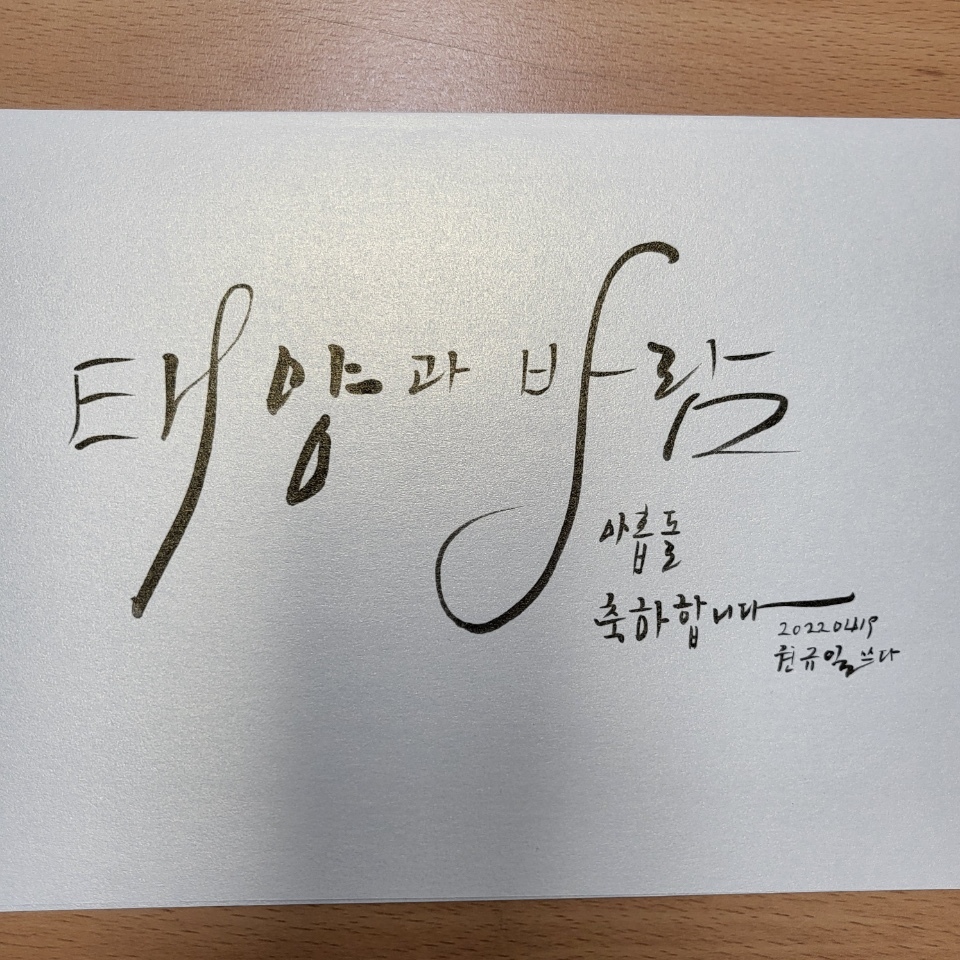 태양과 바람
아홉돌
축하합니다
20220419
원규일 쓰다